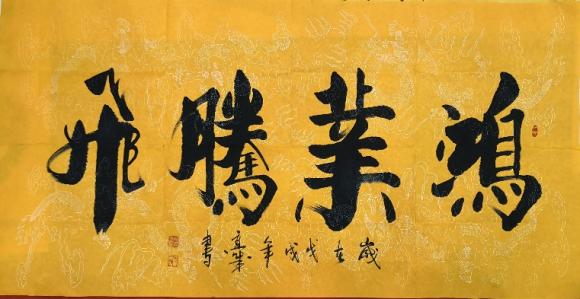 鴻業騰飛
歲在戊戌年立業書